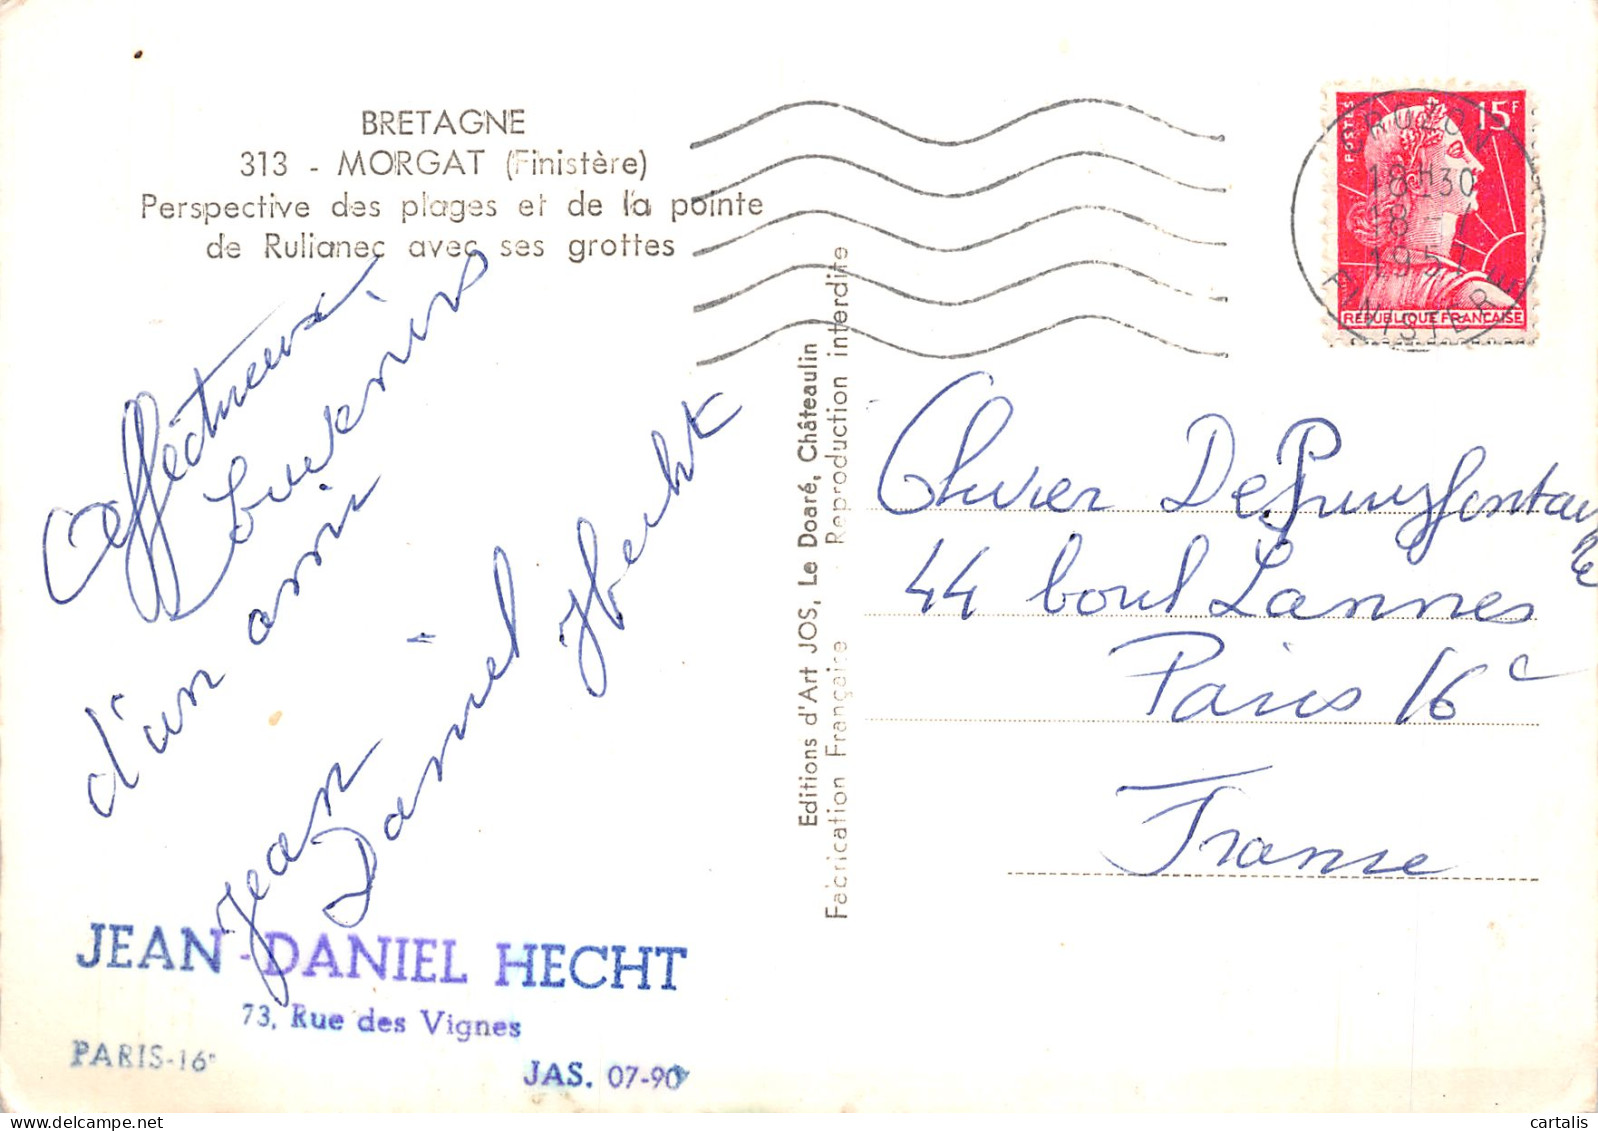 BRETAGNE
313 - MORGAT (Finistère)
Perspective des plages et de la pointe
de Rulianec avec ses grottes
Affectueux
souvenirs
d'un ami
Jean -
Daniel Hecht
JEAN-DANIEL HECHT
73, Rue des Vignes
PARIS-16e
JAS. 07-90
Editions d'Art JOS, Le Doaré, Châteaulin
Fabrication Française Reproduction interdite
POSTES
15F
REPUBLIQUE FRANÇAISE
CROZON
18H30
18 - 7
1957
FINISTERE
Olivier De Puyfontaine
44 boul Lannes
Paris 16e
France
cartalis